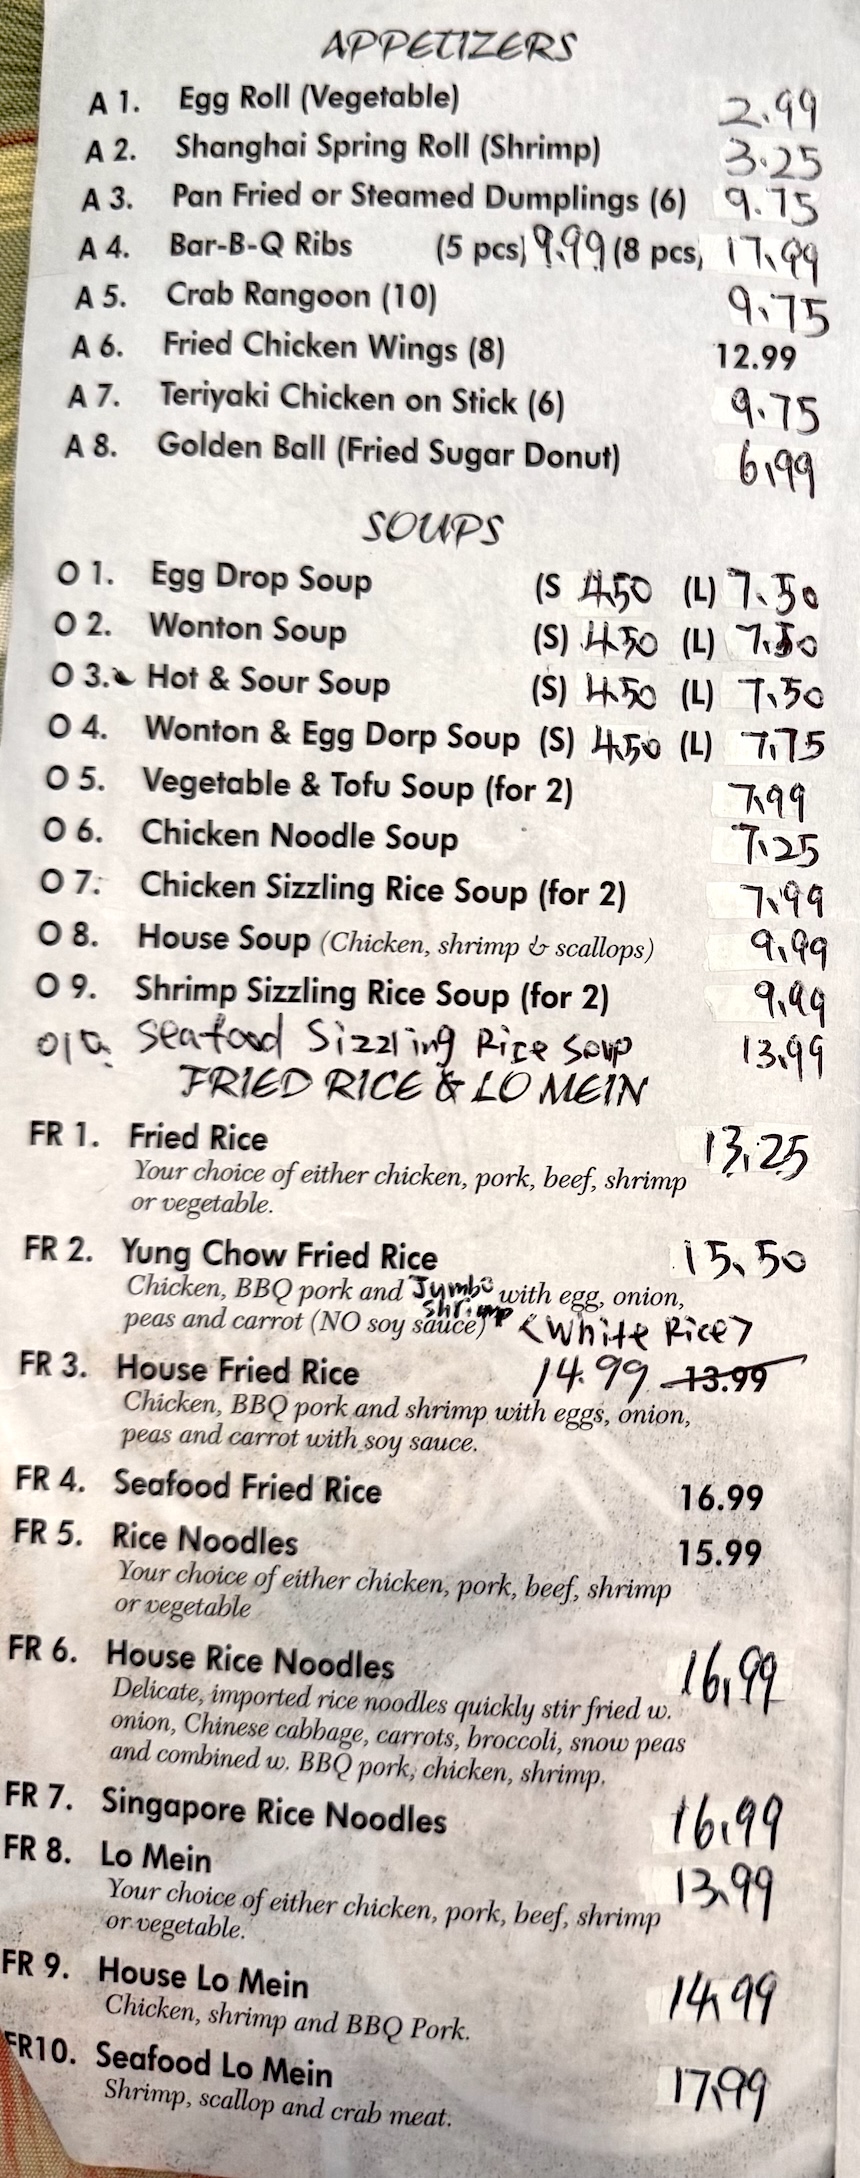 APPETIZERS
A 1. Egg Roll (Vegetable) 2.99
A 2. Shanghai Spring Roll (Shrimp) 3.25
A 3. Pan Fried or Steamed Dumplings (6) 9.75
A 4. Bar-B-Q Ribs (5 pcs) 9.99 (8 pcs) 17.99
A 5. Crab Rangoon (10) 9.75
A 6. Fried Chicken Wings (8) 12.99
A 7. Teriyaki Chicken on Stick (6) 9.75
A 8. Golden Ball (Fried Sugar Donut) 6.99
SOUPS
O 1. Egg Drop Soup (S 4.50 (L) 7.50
O 2. Wonton Soup (S) 4.50 (L) 7.50
O 3. Hot & Sour Soup (S) 4.50 (L) 7.50
O 4. Wonton & Egg Dorp Soup (S) 4.50 (L) 7.75
O 5. Vegetable & Tofu Soup (for 2) 7.99
O 6. Chicken Noodle Soup 7.25
O 7. Chicken Sizzling Rice Soup (for 2) 7.99
O 8. House Soup (Chicken, shrimp & scallops) 9.99
O 9. Shrimp Sizzling Rice Soup (for 2) 9.99
O10. Seafood Sizzling Rice Soup 13.99
FRIED RICE & LO MEIN
FR 1. Fried Rice 13.25
Your choice of either chicken, pork, beef, shrimp
or vegetable.
FR 2. Yung Chow Fried Rice 15.50
Chicken, BBQ pork and Jumbo Shrimp with egg, onion,
peas and carrot (NO soy sauce) <White Rice>
FR 3. House Fried Rice 14.99 13.99
Chicken, BBQ pork and shrimp with eggs, onion,
peas and carrot with soy sauce.
FR 4. Seafood Fried Rice 16.99
FR 5. Rice Noodles 15.99
Your choice of either chicken, pork, beef, shrimp
or vegetable
FR 6. House Rice Noodles 16.99
Delicate, imported rice noodles quickly stir fried w.
onion, Chinese cabbage, carrots, broccoli, snow peas
and combined w. BBQ pork, chicken, shrimp.
FR 7. Singapore Rice Noodles 16.99
FR 8. Lo Mein 13.99
Your choice of either chicken, pork, beef, shrimp
or vegetable.
FR 9. House Lo Mein 14.99
Chicken, shrimp and BBQ Pork.
FR10. Seafood Lo Mein 17.99
Shrimp, scallop and crab meat.